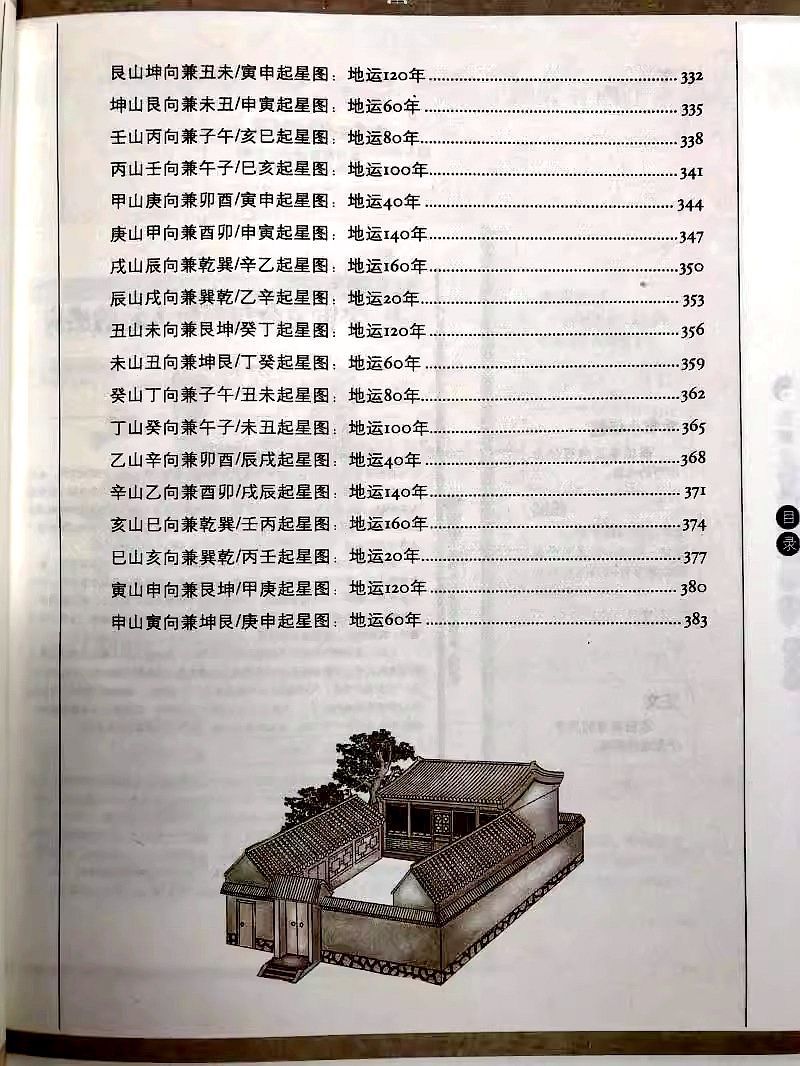 艮山坤向兼丑未/寅申起星图：地运120年 332
坤山艮向兼未丑/申寅起星图：地运60年 335
壬山丙向兼子午/亥巳起星图：地运80年 338
丙山壬向兼午子/巳亥起星图：地运100年 341
甲山庚向兼卯酉/寅申起星图：地运40年 344
庚山甲向兼酉卯/申寅起星图：地运140年 347
戌山辰向兼乾巽/辛乙起星图：地运160年 350
辰山戌向兼巽乾/乙辛起星图：地运20年 353
丑山未向兼艮坤/癸丁起星图：地运120年 356
未山丑向兼坤艮/丁癸起星图：地运60年 359
癸山丁向兼子午/丑未起星图：地运80年 362
丁山癸向兼午子/未丑起星图：地运100年 365
乙山辛向兼卯酉/辰戌起星图：地运40年 368
辛山乙向兼酉卯/戌辰起星图：地运140年 371
亥山巳向兼乾巽/壬丙起星图：地运160年 374
巳山亥向兼巽乾/丙壬起星图：地运20年 377
寅山申向兼艮坤/甲庚起星图：地运120年 380
申山寅向兼坤艮/庚申起星图：地运60年 383
目录